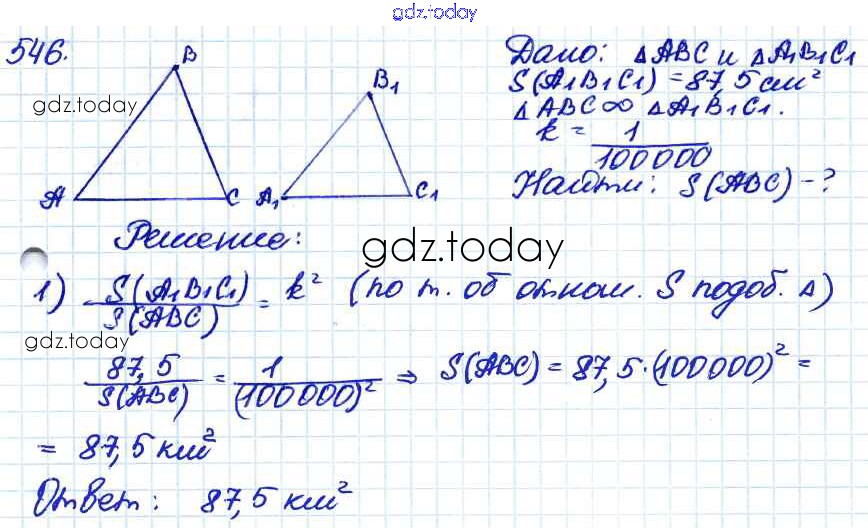 gdz.today
546.
B
B1
A
C
A1
C1
gdz.today
Дано: △ABC и △A1B1C1
S(A1B1C1) = 87,5 см²
△ABC ∞ △A1B1C1.
k = 1/100000
Найти: S(ABC) - ?
Решение:
gdz.today
1) S(A1B1C1)/S(ABC) = k² (по т. об отнош. S подоб. △)
gdz.today
87,5/S(ABC) = 1/(100000)² ⇒ S(ABC) = 87,5·(100000)² =
= 87,5 км²
Ответ: 87,5 км²